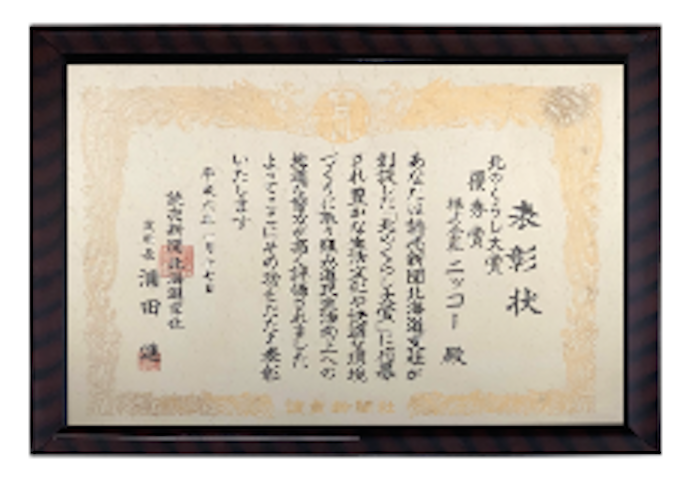 表彰状
北のくらし大賞
優秀賞
株式会社ニッコー 殿
あなたは読売新聞北海道支社が
創設した「北のくらし大賞」に応募
され豊かな生活文化や快適な環境
づくりに取り組み道民生活向上への
努力が高く評価されました
よってここにその功をたたえ表彰
いたします
平成六年 月十七日
読売新聞北海道支社
支社長 浦田
読売新聞社